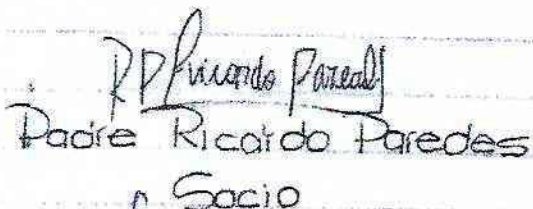 RP Ricardo Pared
Padre Ricardo Paredes
Socio